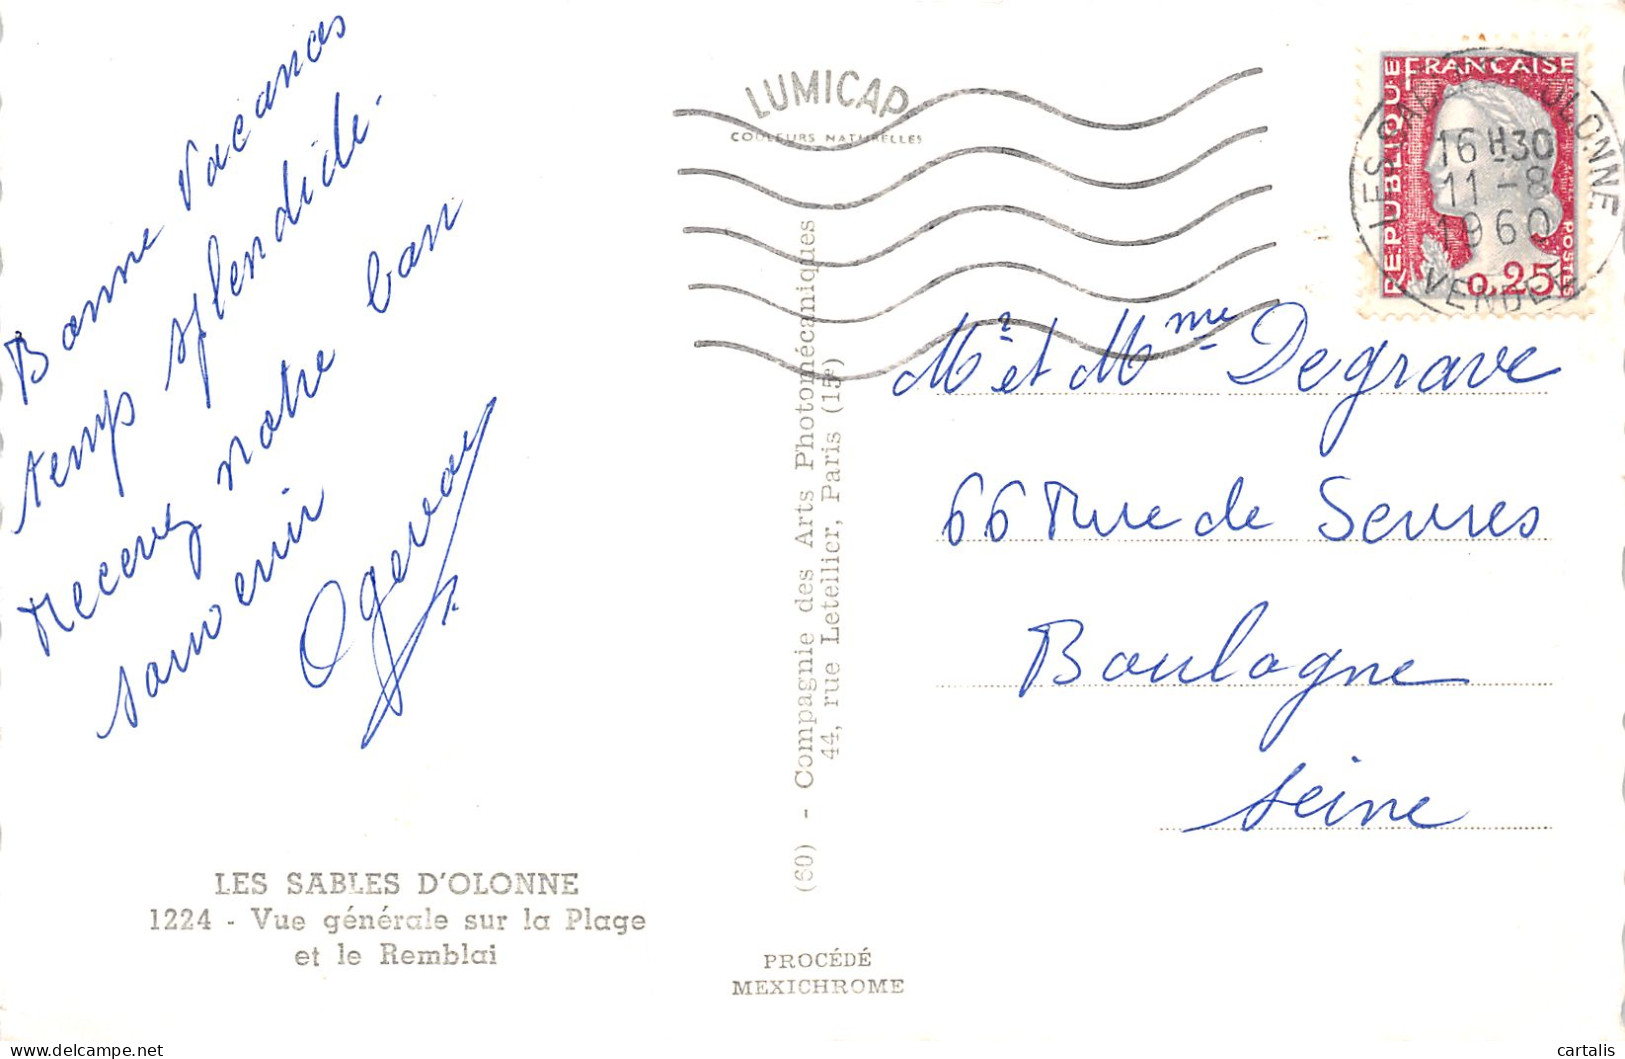 Bonne Vacances
temps splendide.
Recevez notre bon
souvenir
LUMICAP
COULEURS NATURELLES
RÉPUBLIQUE FRANÇAISE
POSTES
0,25
LES SABLES D'OLONNE
16 H 30
11 - 8
1960
VENDÉE
Mr et Mme Degrave
66 Rue de Sevres
Boulogne
Seine
(60) - Compagnie des Arts Photomécaniques
44, rue Letellier, Paris (15e)
LES SABLES D'OLONNE
1224 - Vue générale sur la Plage
et le Remblai
PROCÉDÉ
MEXICHROME
delcampe.net
cartalis